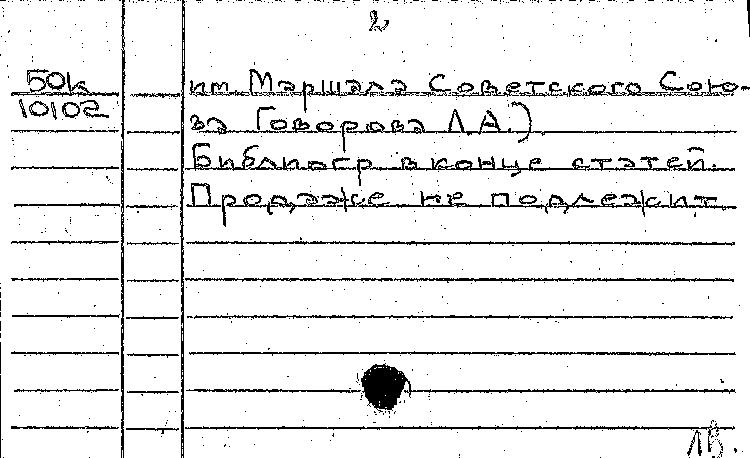 2
50к
10102
им. Маршала Советского Сою-
за Говорова Л.А.)
Библиогр в конце статей.
Продаже не подлежит
ЛВ.